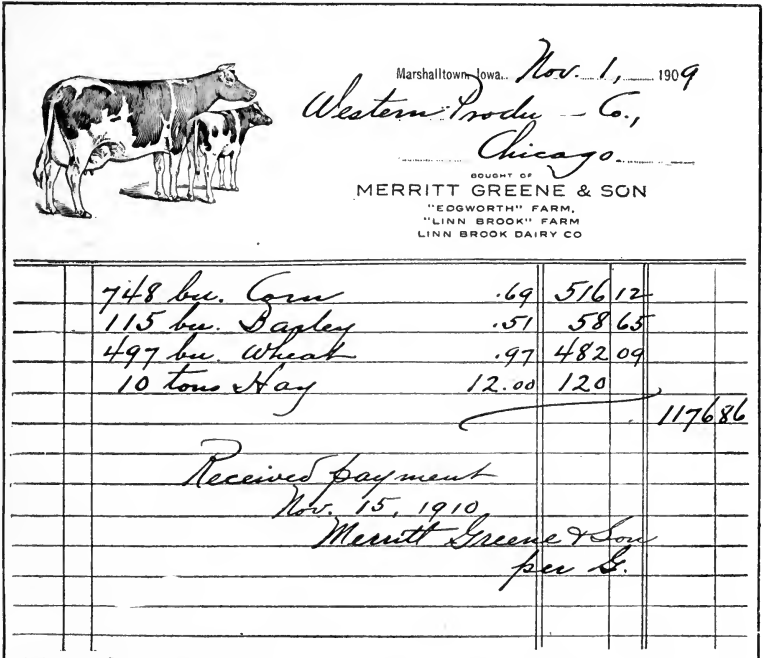 Marshalltown, Iowa. Nov. 1, 1909
Western Produ - Co.,
Chicago.
BOUGHT OF
MERRITT GREENE & SON
"EDGWORTH" FARM,
"LINN BROOK" FARM
LINN BROOK DAIRY CO
748 bu. Corn .69 516 12
115 bu. Barley .51 58 65
497 bu. Wheat .97 482 09
10 tons Hay 12.00 120
1176 86
Received payment
Nov. 15, 1910
Merritt Greene & Son
per G.